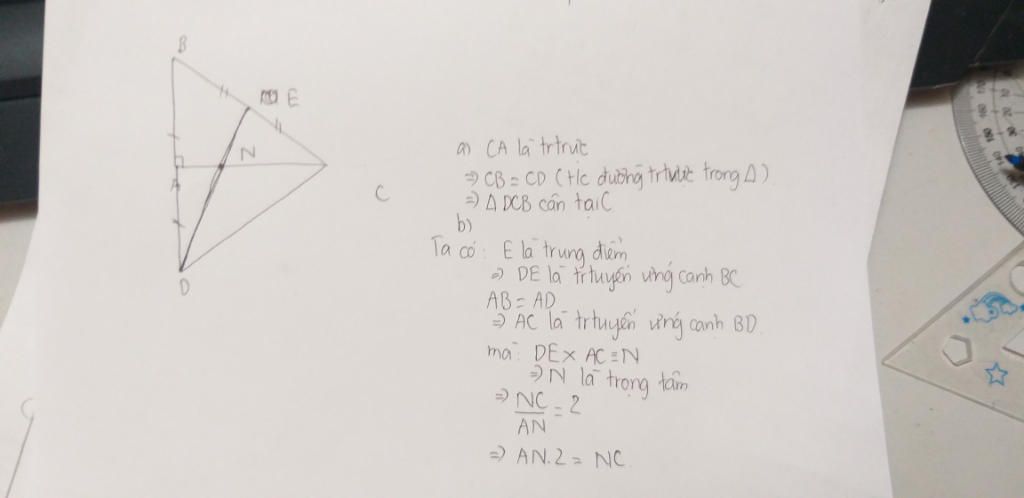 B
E
N
A
C
D
a) CA là trtrực
⇒ CB = CD (t/c đường trtrực trong Δ)
⇒ Δ DCB cân tại C
b)
Ta có: E là trung điểm
⇒ DE là trtuyến ứng cạnh BC
AB = AD
⇒ AC là trtuyến ứng cạnh BD.
mà: DE × AC ≡ N
⇒ N là trọng tâm
⇒ NC/AN = 2
⇒ AN.2 = NC